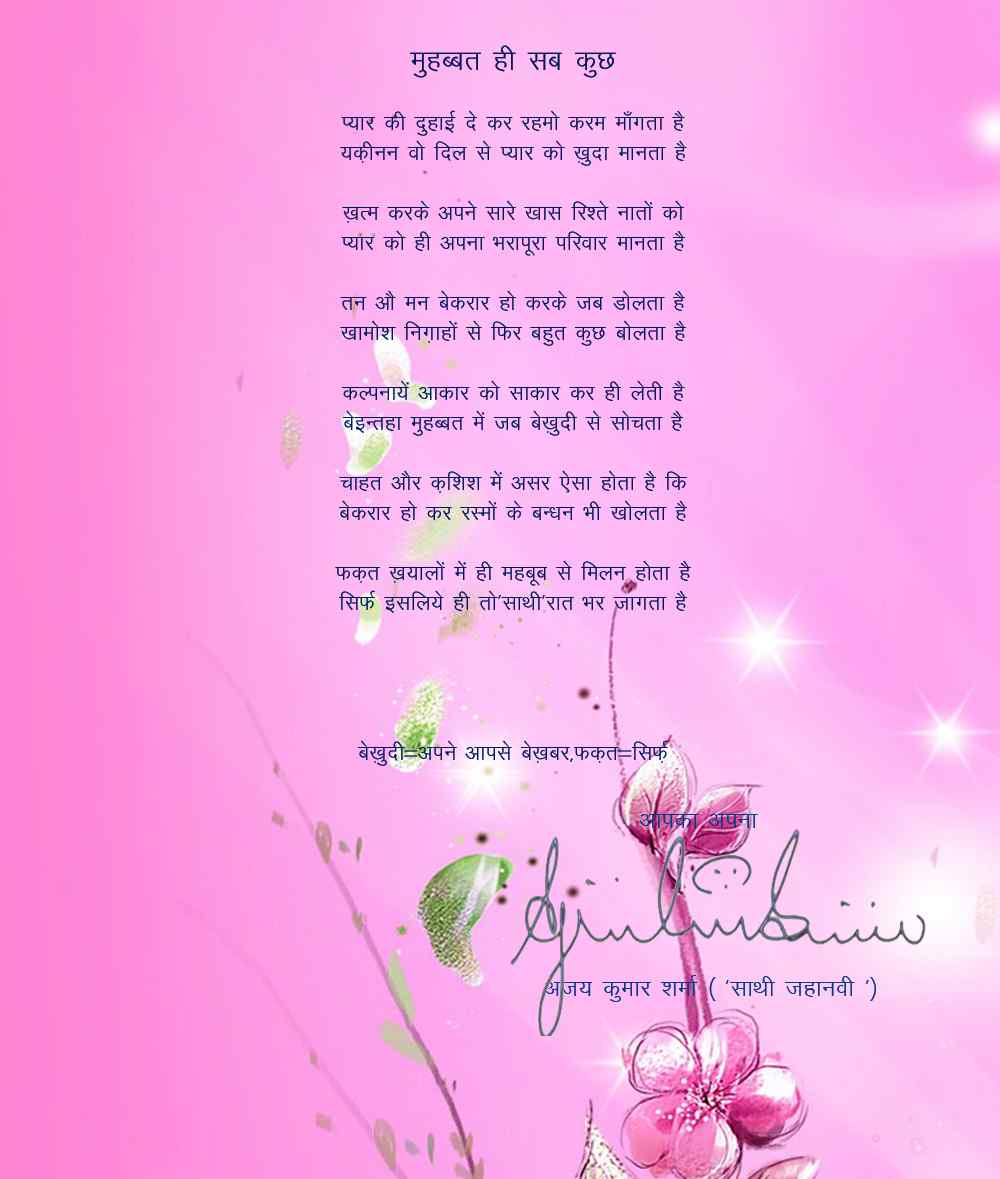 मुहब्बत ही सब कुछ
प्यार की दुहाई दे कर रहमो करम माँगता है
यक़ीनन वो दिल से प्यार को ख़ुदा मानता है
ख़त्म करके अपने सारे खास रिश्ते नातों को
प्यार को ही अपना भरापूरा परिवार मानता है
तन औ मन बेकरार हो करके जब डोलता है
खामोश निगाहों से फिर बहुत कुछ बोलता है
कल्पनायें आकार को साकार कर ही लेती है
बेइन्तहा मुहब्बत में जब बेख़ुदी से सोचता है
चाहत और क़शिश में असर ऐसा होता है कि
बेकरार हो कर रस्मों के बन्धन भी खोलता है
फक़त ख़यालों में ही महबूब से मिलन होता है
सिर्फ इसलिये ही तो'साथी'रात भर जागता है
बेख़ुदी=अपने आपसे बेख़बर,फक़त=सिर्फ़
आपका अपना
अजय कुमार शर्मा ( 'साथी जहानवी ')